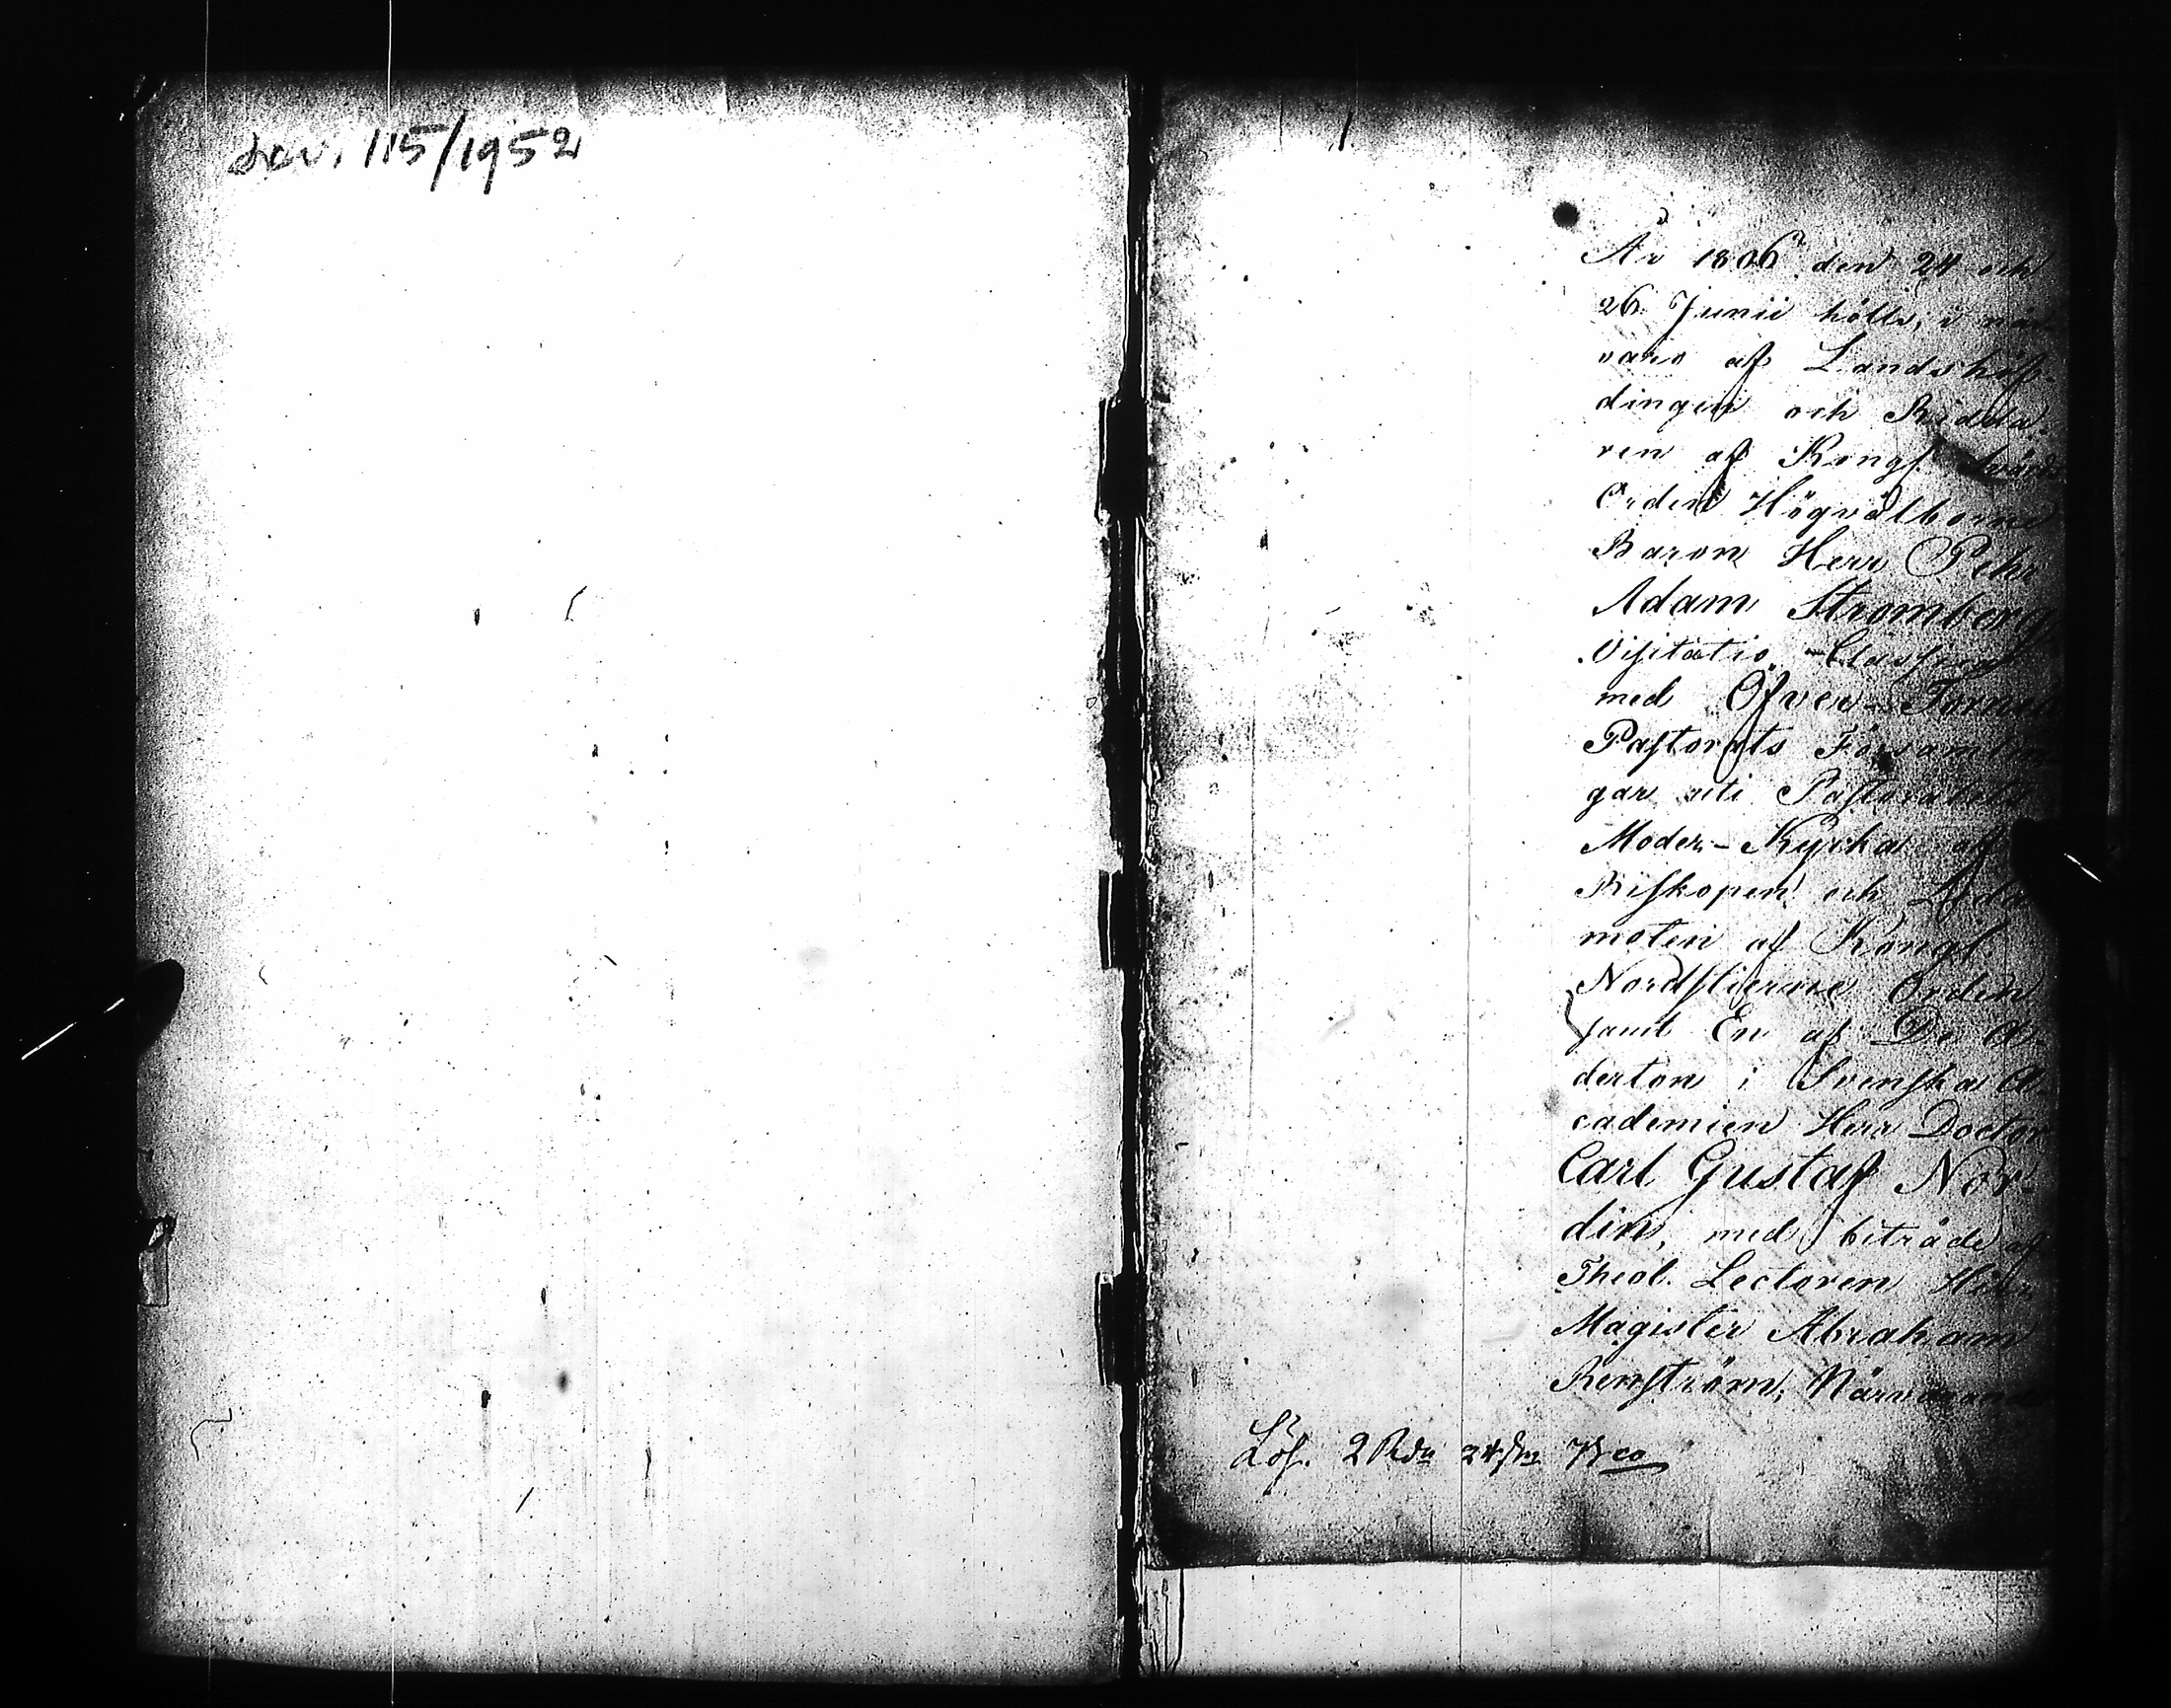 acc. 115/1952
År 1806 den 24 och
26 Junii hölls, i när-
varo af Landshöf-
dingen och Ridda-
ren af Kongl. Svärds
Orden Högvälborne
Baron Herr Pehr
Adam Stromberg
Visitatio
med Öfver-Torneå
Pastorats Församlin
gar uti Pastoratets
Moder-Kyrka af
Biskopen och Leda
moten af Kongl.
Nordstierne Orden
samt En af De A-
derton i Svenska A-
cademien Herr Doctor
Carl Gustaf Nor-
din, med biträde af
Theol. Lectoren Herr
Magister Abraham
Renström, Närvarande
Lös. 2 Rdr 24 sk Bco